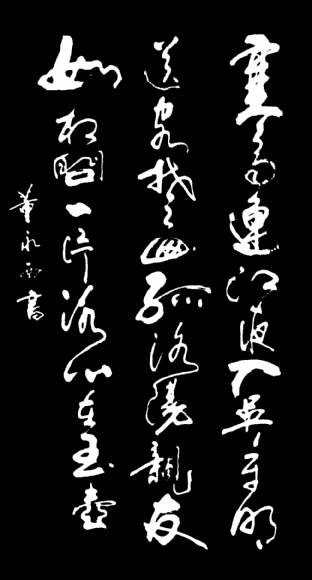 寒雨連江夜入吳平明
送客楚山孤洛陽親友
如相問一片冰心在玉壺
董永 書